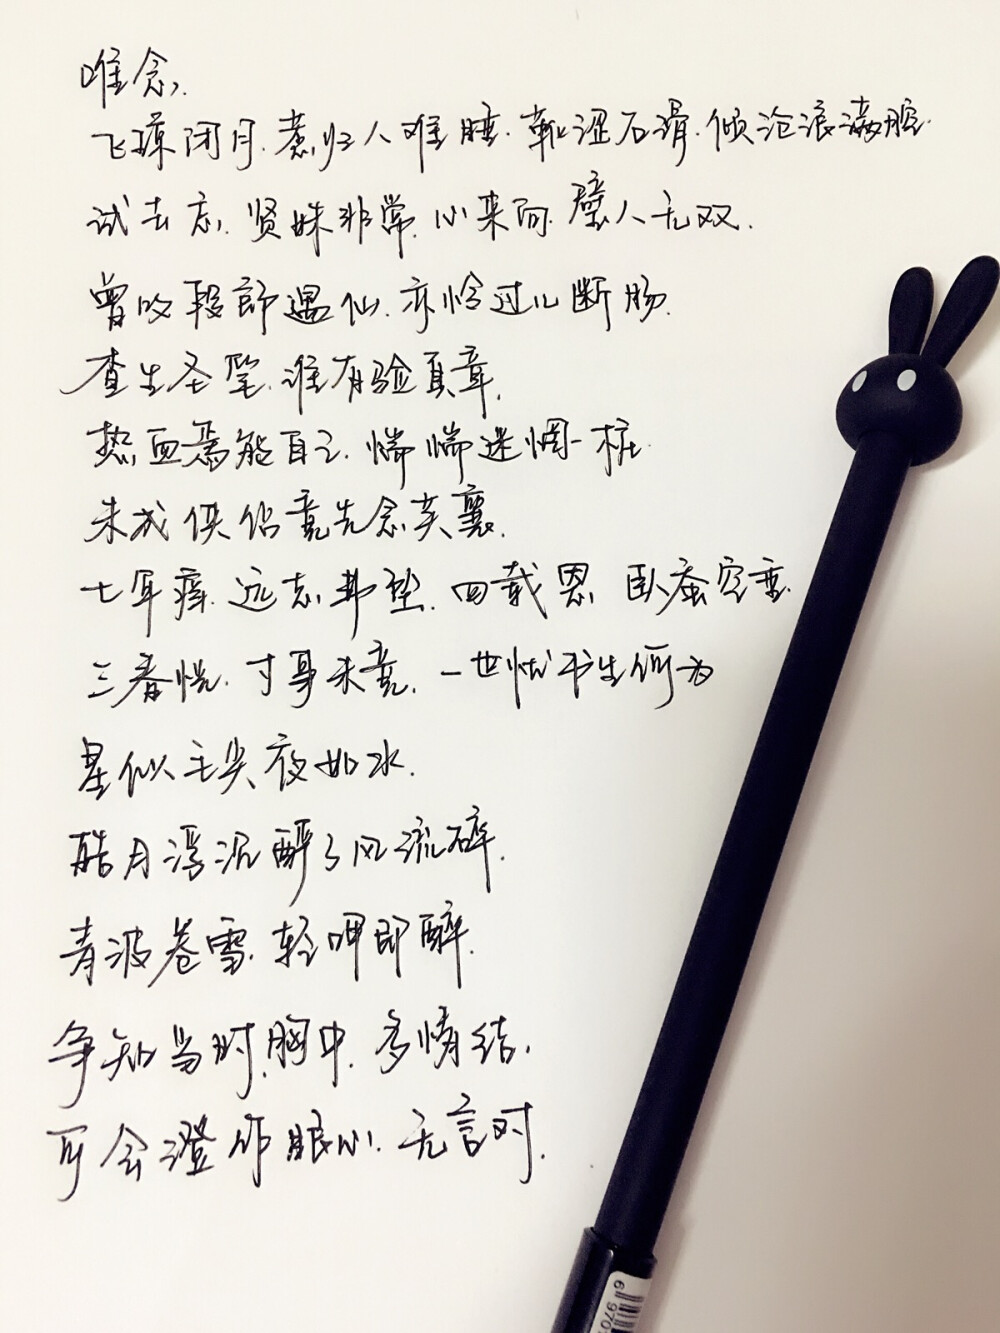 唯念.
飞琼闭月.惹归人难睡.靴涩石滑.倾沧浪满腔.
试去忘.贤妹非常.小来阿.璧人无双.
曾叹段郎遇仙.亦恰过儿断肠.
查生圣笔.谁有验真章.
热血焉能自已.惴惴迷惘一桩.
未成侠侣竟先念芙襄.
七年痒.远志弗坠.四载恩.卧蚕空垂.
三春恍.寸哥未竟.一世忧书生何为
星似毛尖夜如水.
皓月浮沉醉了风流碎.
青波卷雪.轻呷即醉.
争知当时.胸中.多情结.
可会澄作眼心.无言对.
6 970